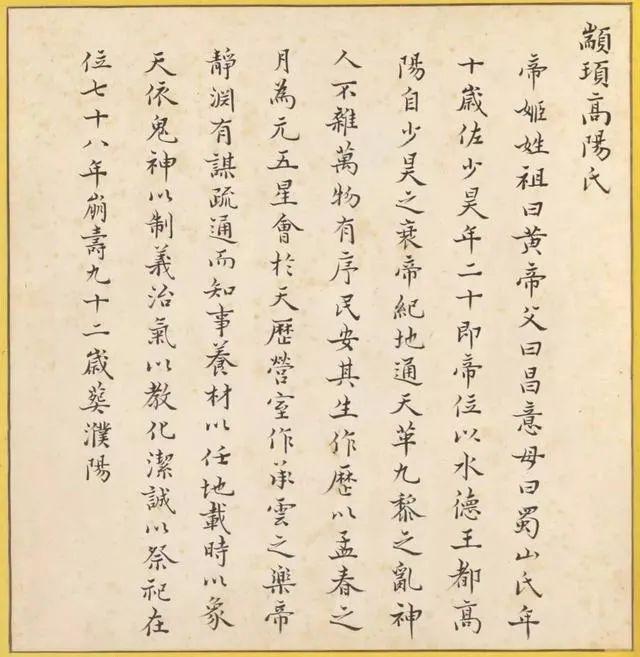 顓頊高陽氏
帝姬姓祖曰黃帝父曰昌意母曰蜀山氏年
十歲佐少昊年二十即帝位以水德王都高
陽自少昊之衰帝紀地通天革九黎之亂神
人不雜萬物有序民安其生作歷以孟春之
月為元五星會於天歷營室作承雲之樂帝
靜淵有謀疏通而知事養材以任地載時以象
天依鬼神以制義治氣以教化潔誠以祭祀在
位七十八年崩壽九十二歲葬濮陽